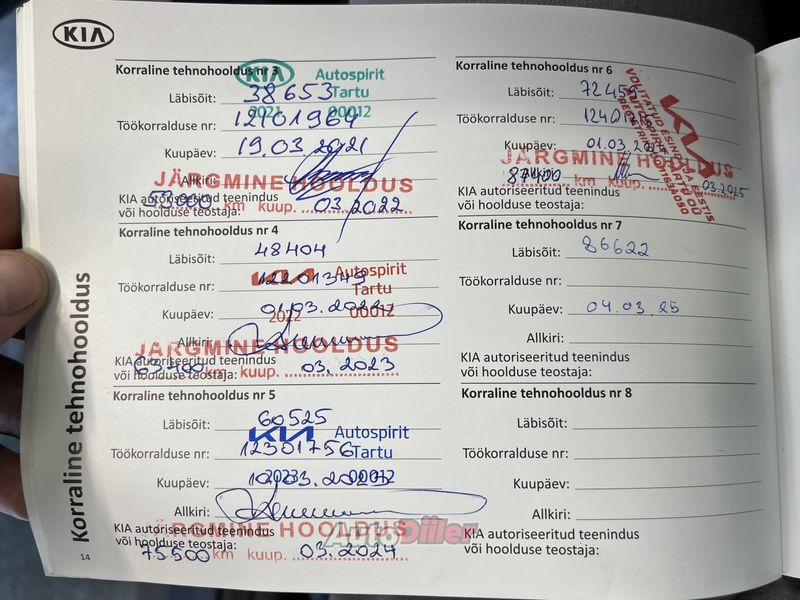 KIA
Korraline tehnohooldus nr 3
KIA Autospirit
Tartu
2021 00012
Läbisõit: 38653
Töökorralduse nr: 12101964
Kuupäev: 19.03.2021
Allkiri:
JÄRGMINE HOOLDUS
KIA autoriseeritud teenindus
või hoolduse teostaja:
53000 km kuup. 03.2022
Korraline tehnohooldus nr 4
Läbisõit: 48404
KIA Autospirit
Tartu
2022 00012
Töökorralduse nr: 12201349
Kuupäev: 01.03.2022
Allkiri:
JÄRGMINE HOOLDUS
KIA autoriseeritud teenindus
või hoolduse teostaja:
63400 km kuup. 03.2023
Korraline tehnohooldus nr 5
Läbisõit: 60525
KIA Autospirit
Tartu
2023 00012
Töökorralduse nr: 12301756
Kuupäev: 10.03.2023
Allkiri:
JÄRGMINE HOOLDUS
KIA autoriseeritud teenindus
või hoolduse teostaja:
75500 km kuup. 03.2024
Korraline tehnohooldus nr 6
Läbisõit: 72459
Töökorralduse nr:
Kuupäev: 01.03.
KIA
VOLITATUD ESINDAJA EESTIS
AUTOSPIRIT TARTU OÜ
JÄRGMINE HOOLDUS
Allkiri:
87400 km kuup. 03.2025
KIA autoriseeritud teenindus
või hoolduse teostaja:
Korraline tehnohooldus nr 7
Läbisõit: 86622
Töökorralduse nr:
Kuupäev: 04.03.25
Allkiri:
KIA autoriseeritud teenindus
või hoolduse teostaja:
Korraline tehnohooldus nr 8
Läbisõit:
Töökorralduse nr:
Kuupäev:
Allkiri:
KIA autoriseeritud teenindus
või hoolduse teostaja:
Korraline tehnohooldus
14
AutoDiiler